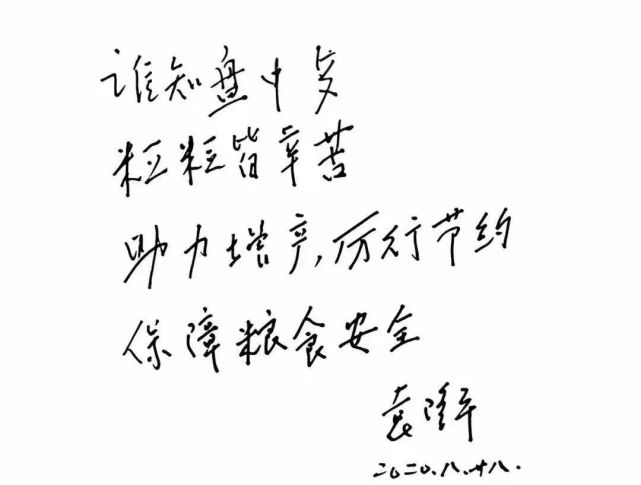 谁知盘中歺
粒粒皆辛苦
助力增产,厉行节约
保障粮食安全
袁隆平
二〇二〇.八.廿八.